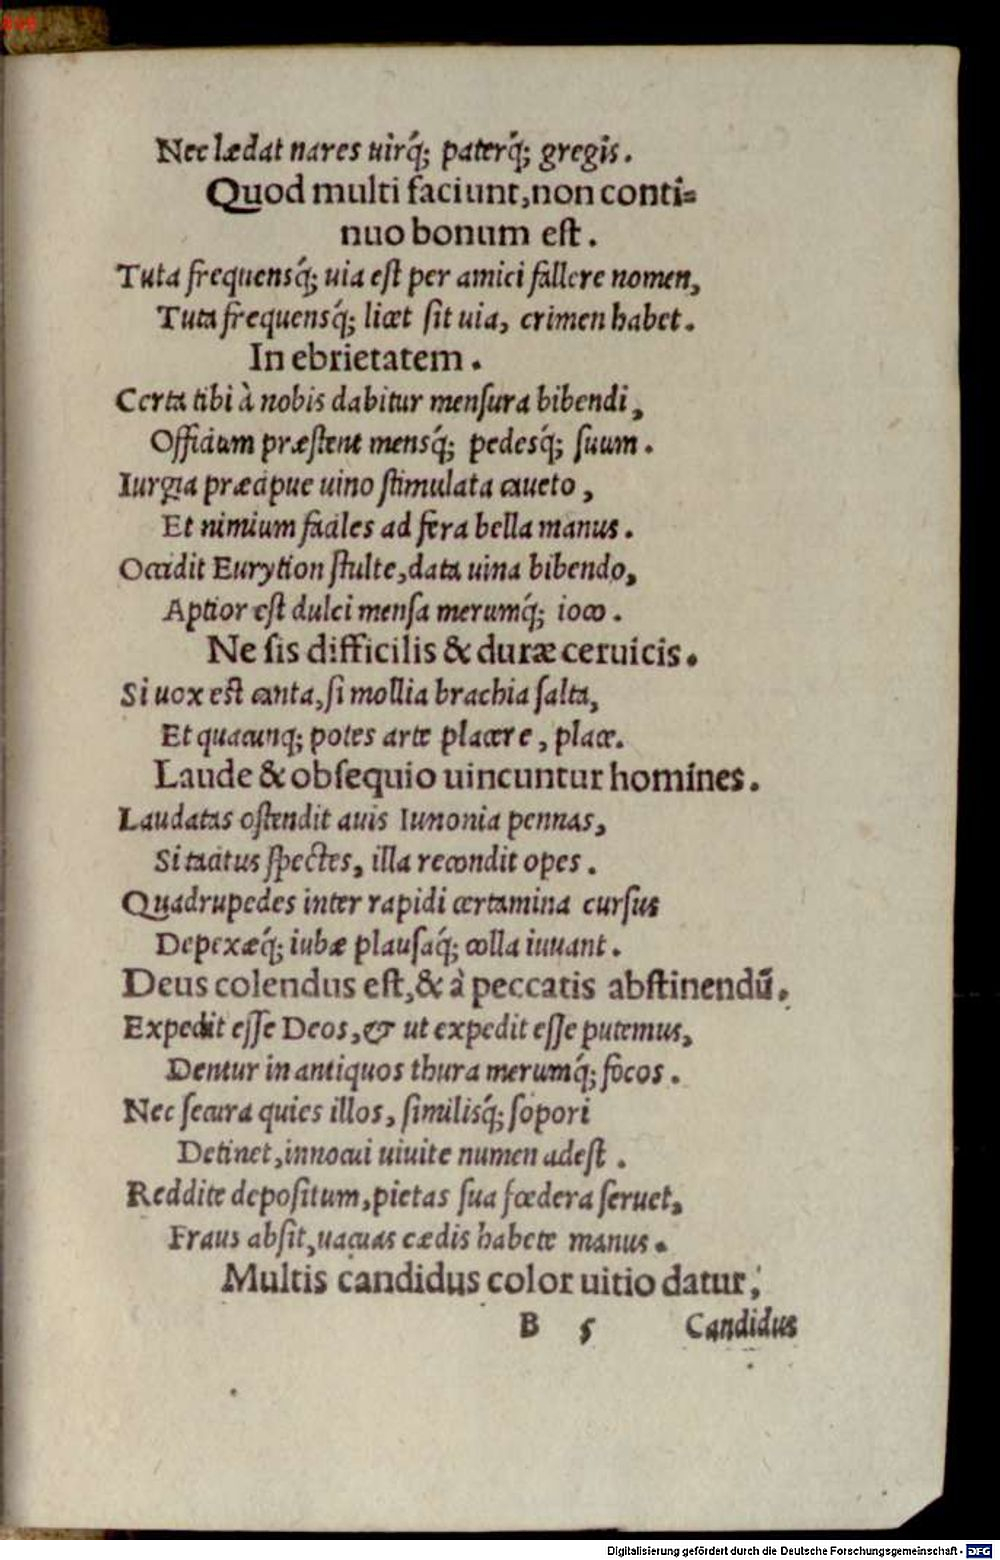 Nec lædat nares uirq́; paterq́; gregis.
Quod multi faciunt, non conti=
nuo bonum est.
Tuta frequensq́; uia est per amici fallere nomen,
Tuta frequensq́; licet sit uia, crimen habet.
In ebrietatem.
Certa tibi à nobis dabitur mensura bibendi,
Officium præstent mensq́; pedesq́; suum.
Iurgia præcipue uino stimulata caueto,
Et nimium faciles ad fera bella manus.
Occidit Eurytion stulte, data uina bibendo,
Aptior est dulci mensa merumq́; ioco.
Ne sis difficilis & duræ ceruicis.
Si uox est canta, si mollia brachia salta,
Et quacunq; potes arte placere, place.
Laude & obsequio uincuntur homines.
Laudatas ostendit auis Iunonia pennas,
Si tacitus spectes, illa recondit opes.
Quadrupedes inter rapidi certamina cursus
Depexæq́; iubæ plausaq́; colla iuuant.
Deus colendus est, & à peccatis abstinendū.
Expedit esse Deos, & ut expedit esse putemus,
Dentur in antiquos thura merumq́; focos.
Nec secura quies illos, similisq́; sopori
Detinet, innocui uiuite numen adest.
Reddite depositum, pietas sua fœdera seruet,
Fraus absit, uacuas cædis habete manus.
Multis candidus color uitio datur,
B 5 Candidus
Digitalisierung gefördert durch die Deutsche Forschungsgemeinschaft - DFG